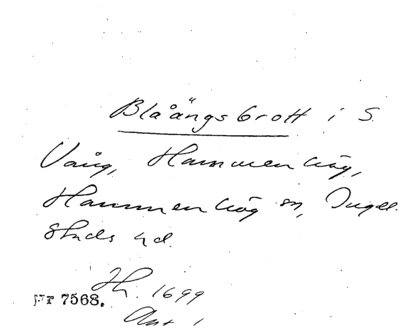 Blåängsbrott i S.
Vång, Hammenhög,
Hammenhög sn, Ingel-
stads hd.
Hh. 1699
Nr 7568.